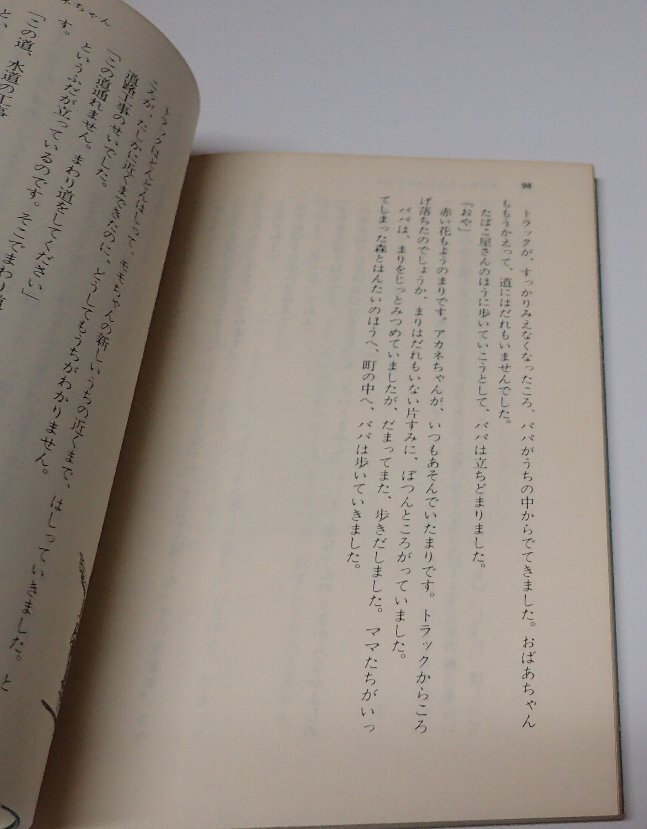 98
トラックが、すっかりみえなくなったころ、パパがうちの中からでてきました。おばあちゃん
ももうかえって、道にはだれもいませんでした。
たばこ屋さんのほうに歩いていこうとして、パパは立ちどまりました。
「おや」
赤い花もようのまりです。アカネちゃんが、いつもあそんでいたまりです。トラックからころ
げ落ちたのでしょうか、まりはだれもいない片すみに、ぽつんところがっていました。
パパは、まりをじっとみつめていましたが、だまってまた、歩きだしました。ママたちがいっ
てしまった森とはんたいのほうへ、町の中へ、パパは歩いていきました。
ネちゃん
トラックはどんどんはしって、モモちゃんの新しいうちの近くまで、はしっていきました。と
ころが、たしかに近くまできたのに、どうしてもうちがわかりません。
道路工事のせいでした。
「この道通れません。まわり道をしてください」
というふだが立っているのです。そこでまわり道
す。
「この道、水道の工事
と、